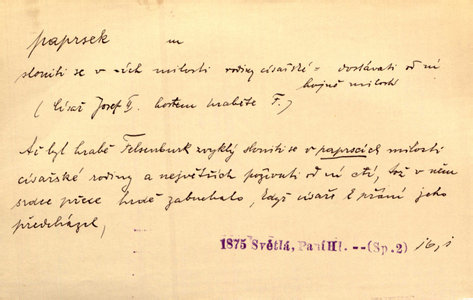 paprsek m
slouniti se v -cích milosti rodiny císařské = dostávati od ní
hojně milostí
(císař Josef II. hostem hraběte F.)
Ač byl hrabě Felsenburk zvyklý slouniti se v paprscích milosti
císařské rodiny a největších požívati od ní ctí, tož v něm
srdce přece hrdě zabuchalo, když císař i přání jeho
předcházel,
1875 Světlá, Paní Hl. --(Sp.2) 16, 1